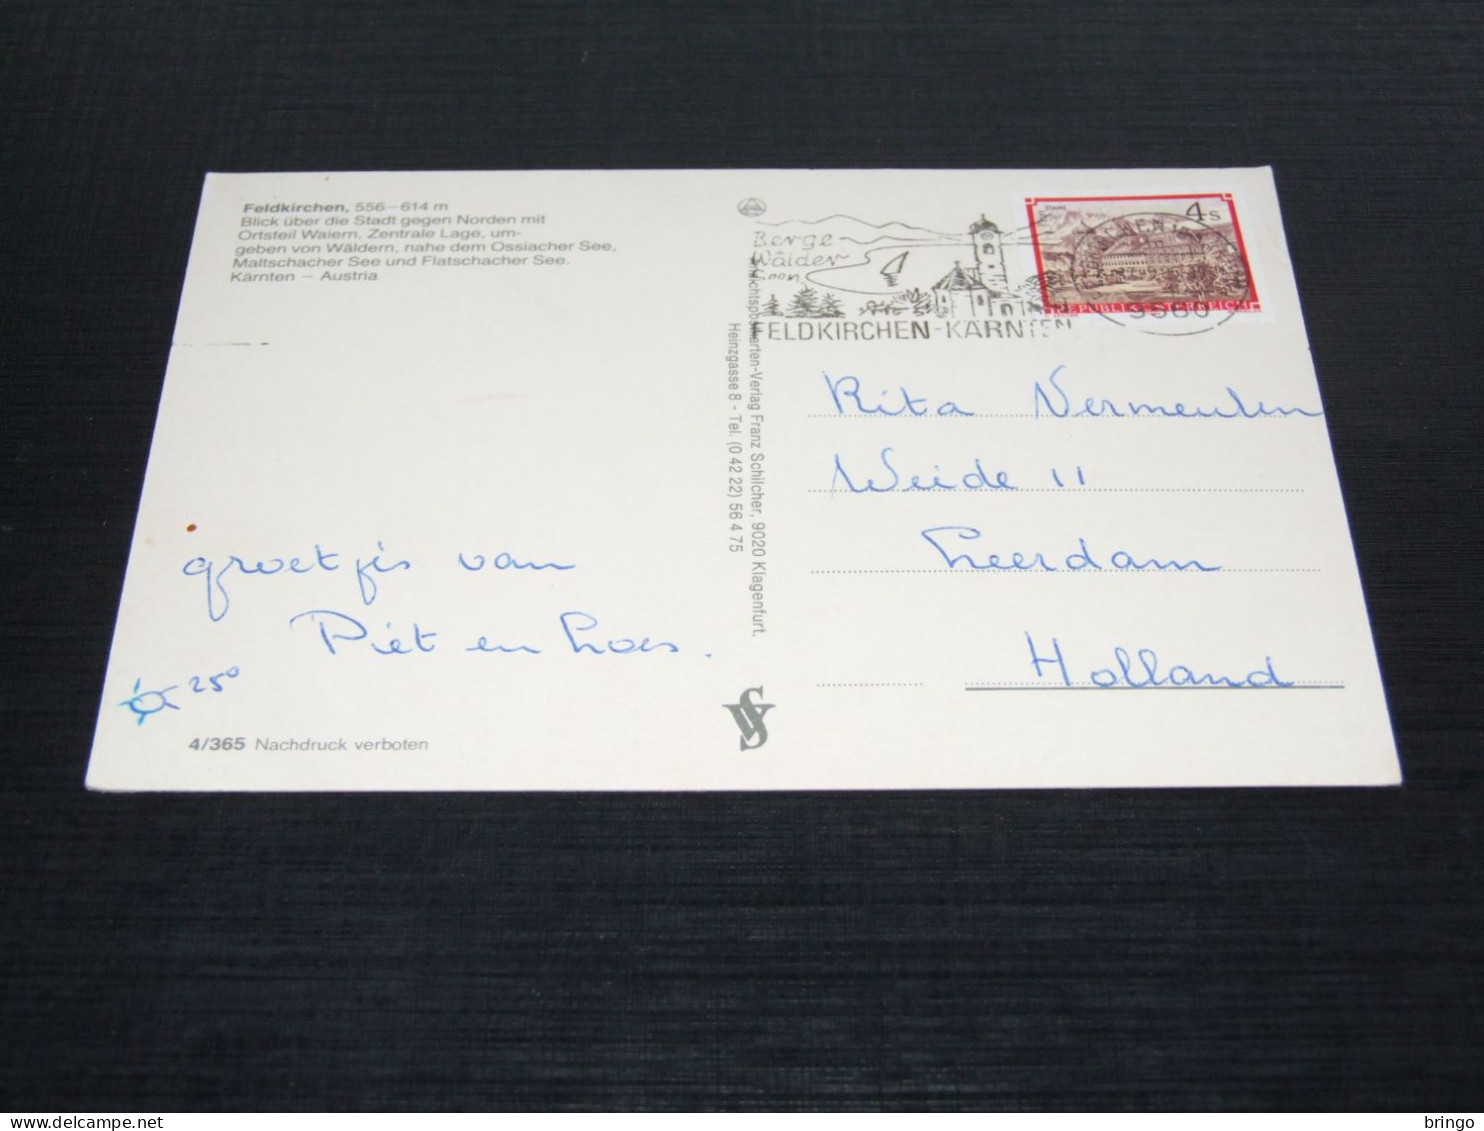 Feldkirchen, 556–614 m
Blick über die Stadt gegen Norden mit
Ortsteil Waiern. Zentrale Lage, um-
geben von Wäldern, nahe dem Ossiacher See,
Maltschacher See und Flatschacher See.
Kärnten – Austria
groetjes van
Piet en Loes.
25°
4/365 Nachdruck verboten
Verlag Franz Schilcher, 9020 Klagenfurt,
Heinzgasse 8 - Tel. (0 42 22) 56 4 75
Berge
Wälder
ELDKIRCHEN-KÄRNTEN
STAMS
4 S
REPUBLIK ÖSTERREICH
9560
Rita Vermeulen
Weide 11
Leerdam
Holland
bringo